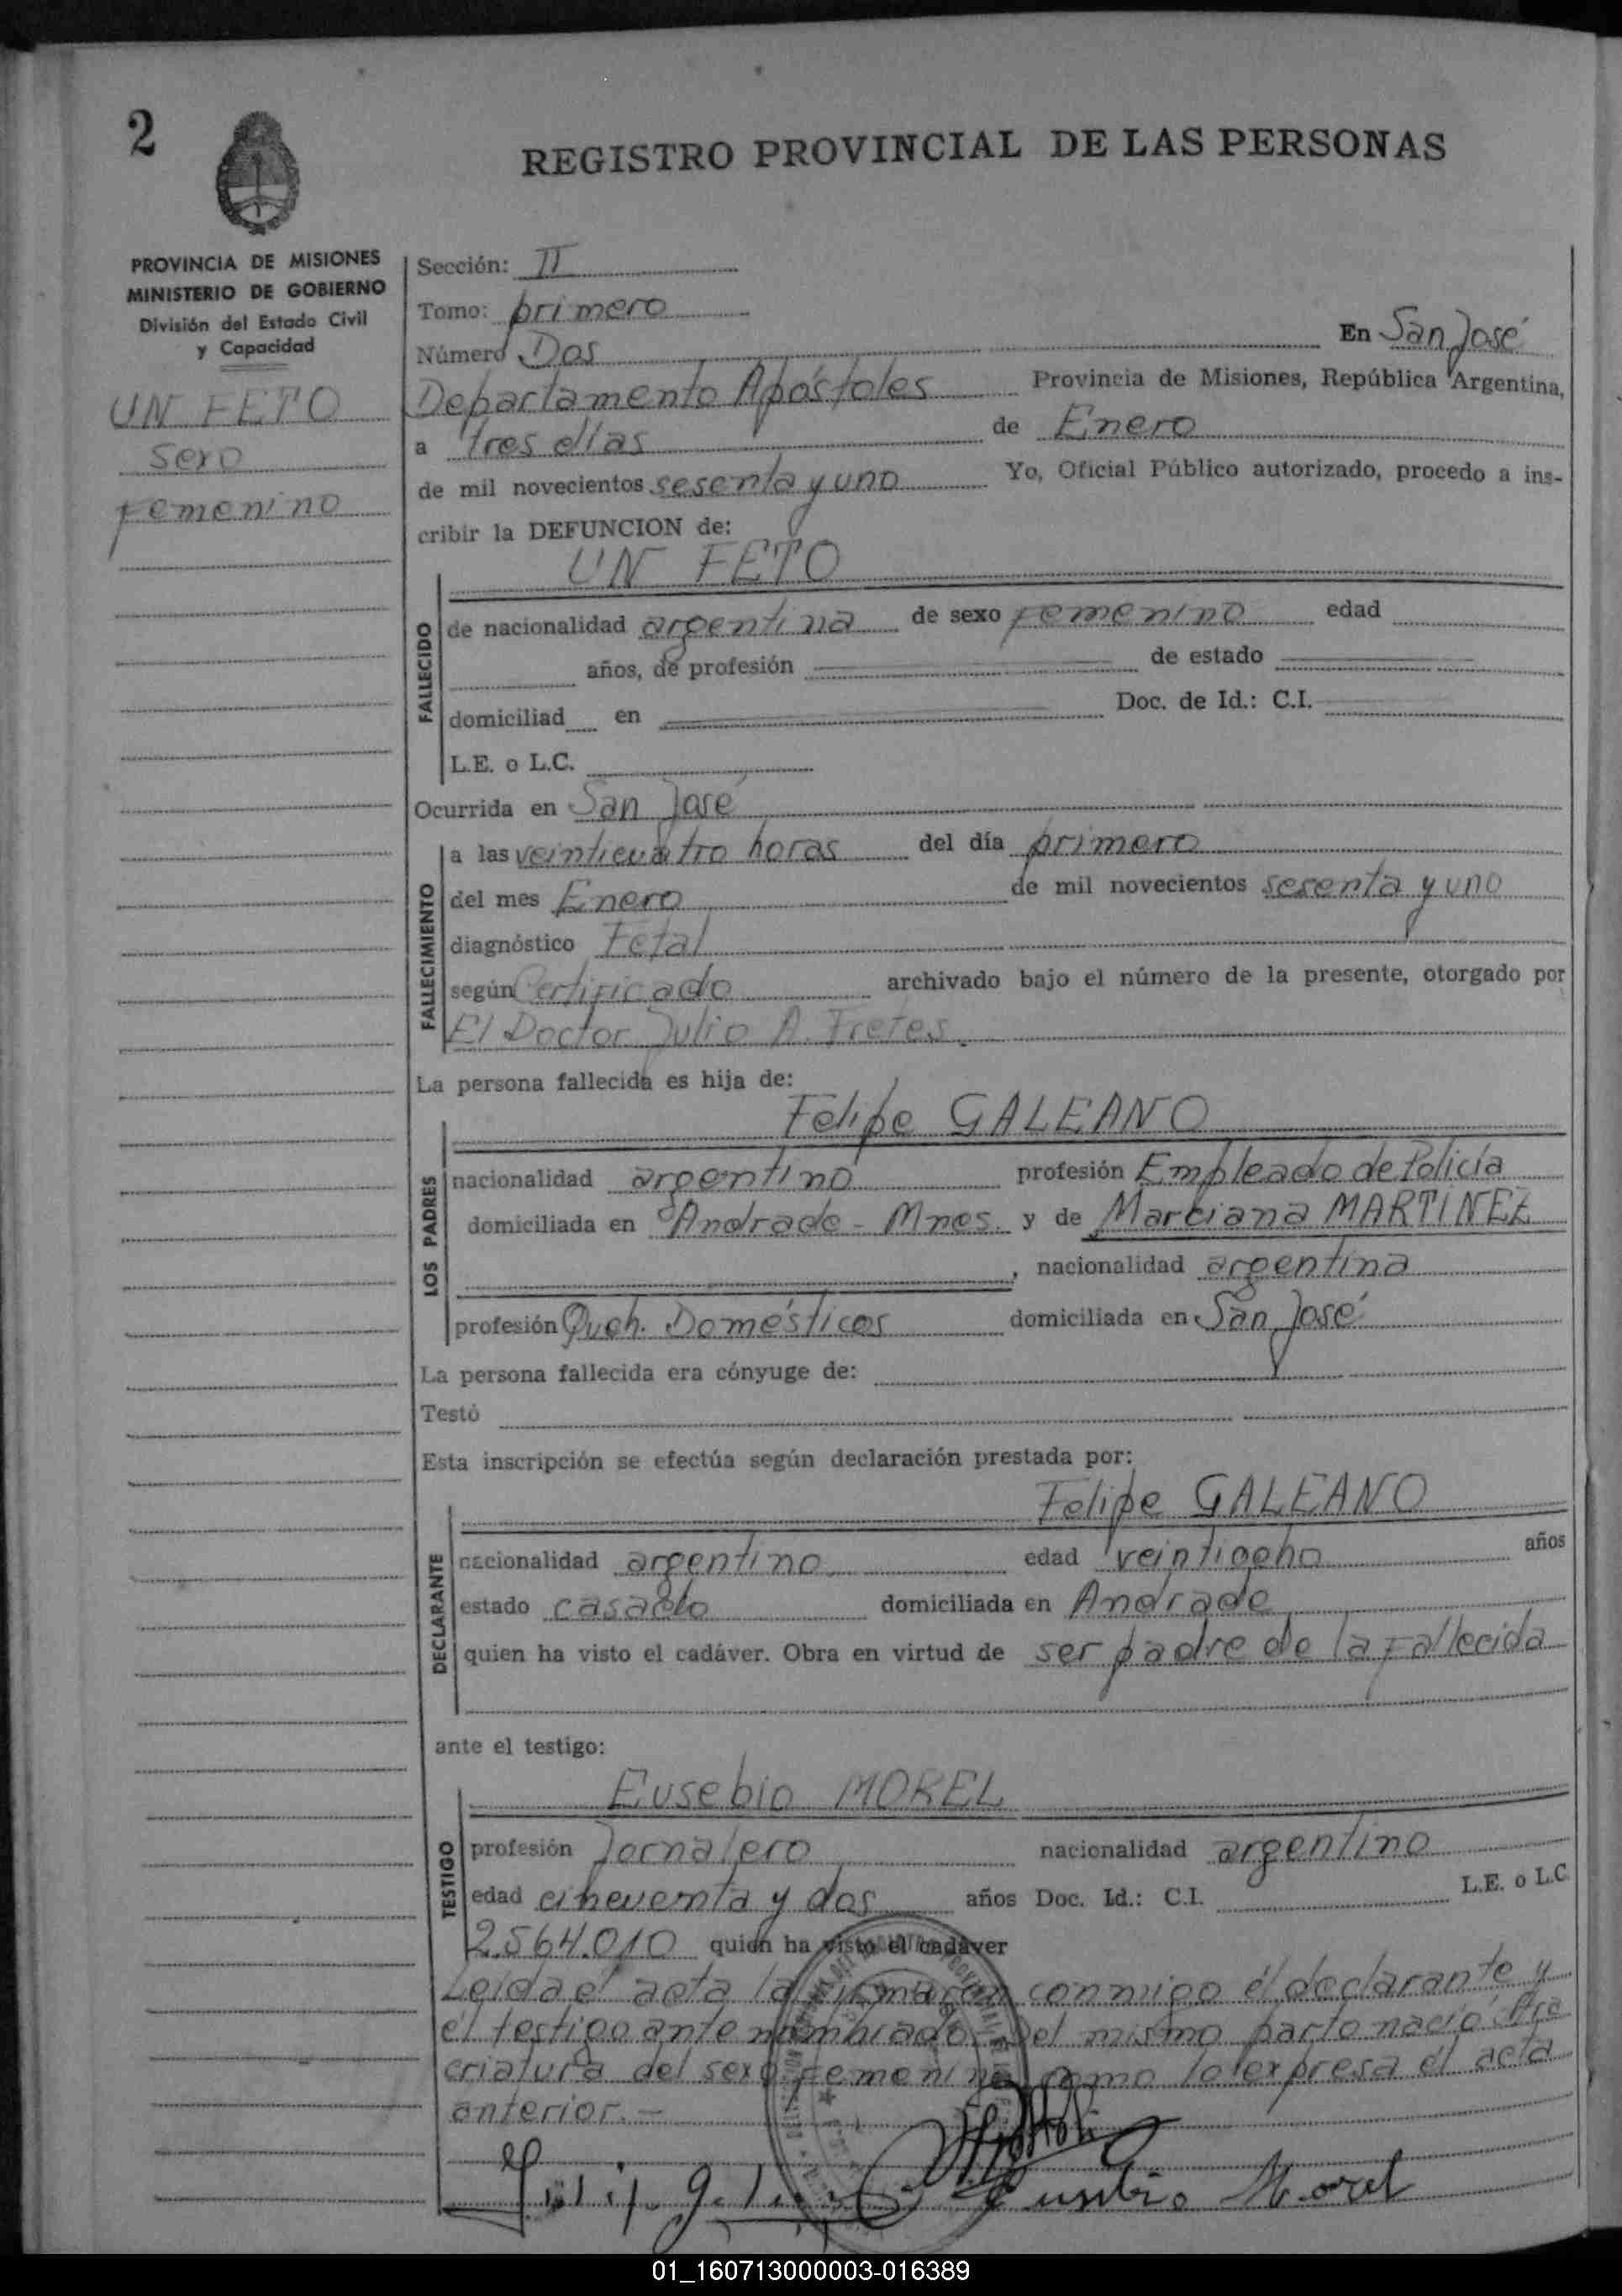 2
REGISTRO PROVINCIAL DE LAS PERSONAS
PROVINCIA DE MISIONES
MINISTERIO DE GOBIERNO
División del Estado Civil
y Capacidad
UN FETO
Sexo
Femenino
Sección: II
Tomo: primero
Número Dos En San José
Departamento Apóstoles Provincia de Misiones, República Argentina,
a tres días de Enero
de mil novecientos sesenta y uno Yo, Oficial Público autorizado, procedo a ins-
cribir la DEFUNCION de:
UN FETO
FALLECIDO
de nacionalidad argentina de sexo Femenino edad
años, de profesión de estado
domiciliad en Doc. de Id.: C.I.
L.E. o L.C.
Ocurrida en San José
FALLECIMIENTO
a las veinticuatro horas del día primero
del mes Enero de mil novecientos sesenta y uno
diagnóstico Fetal
según Certificado archivado bajo el número de la presente, otorgado por
El Doctor Julio A. Fretes.
La persona fallecida es hija de:
Felipe GALEANO
LOS PADRES
nacionalidad argentino profesión Empleado de Policía
domiciliada en Andrade - Mnes. y de Marciana MARTINEZ
, nacionalidad argentina
profesión Queh. Domésticos domiciliada en San José
La persona fallecida era cónyuge de:
Testó
Esta inscripción se efectúa según declaración prestada por:
Felipe GALEANO
DECLARANTE
nacionalidad argentino edad veintiocho años
estado casado domiciliada en Andrade
quien ha visto el cadáver. Obra en virtud de ser padre de la fallecida
ante el testigo:
Eusebio MOREL
TESTIGO
profesión Jornalero nacionalidad argentino
edad cincuenta y dos años Doc. Id.: C.I. L.E. o L.C.
2.564.010 quien ha visto el cadáver
Leída el acta la firmaron conmigo el declarante y
el testigo ante nombrado. Del mismo parto nació otra
criatura del sexo femenino como lo expresa el acta
anterior.-
Eusebio Morel
01_160713000003-016389